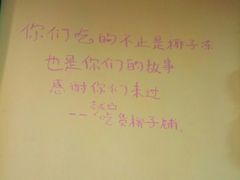 你们吃的不止是椰子冻
也是你们的故事
感谢你们来过
--吃货椰子铺.